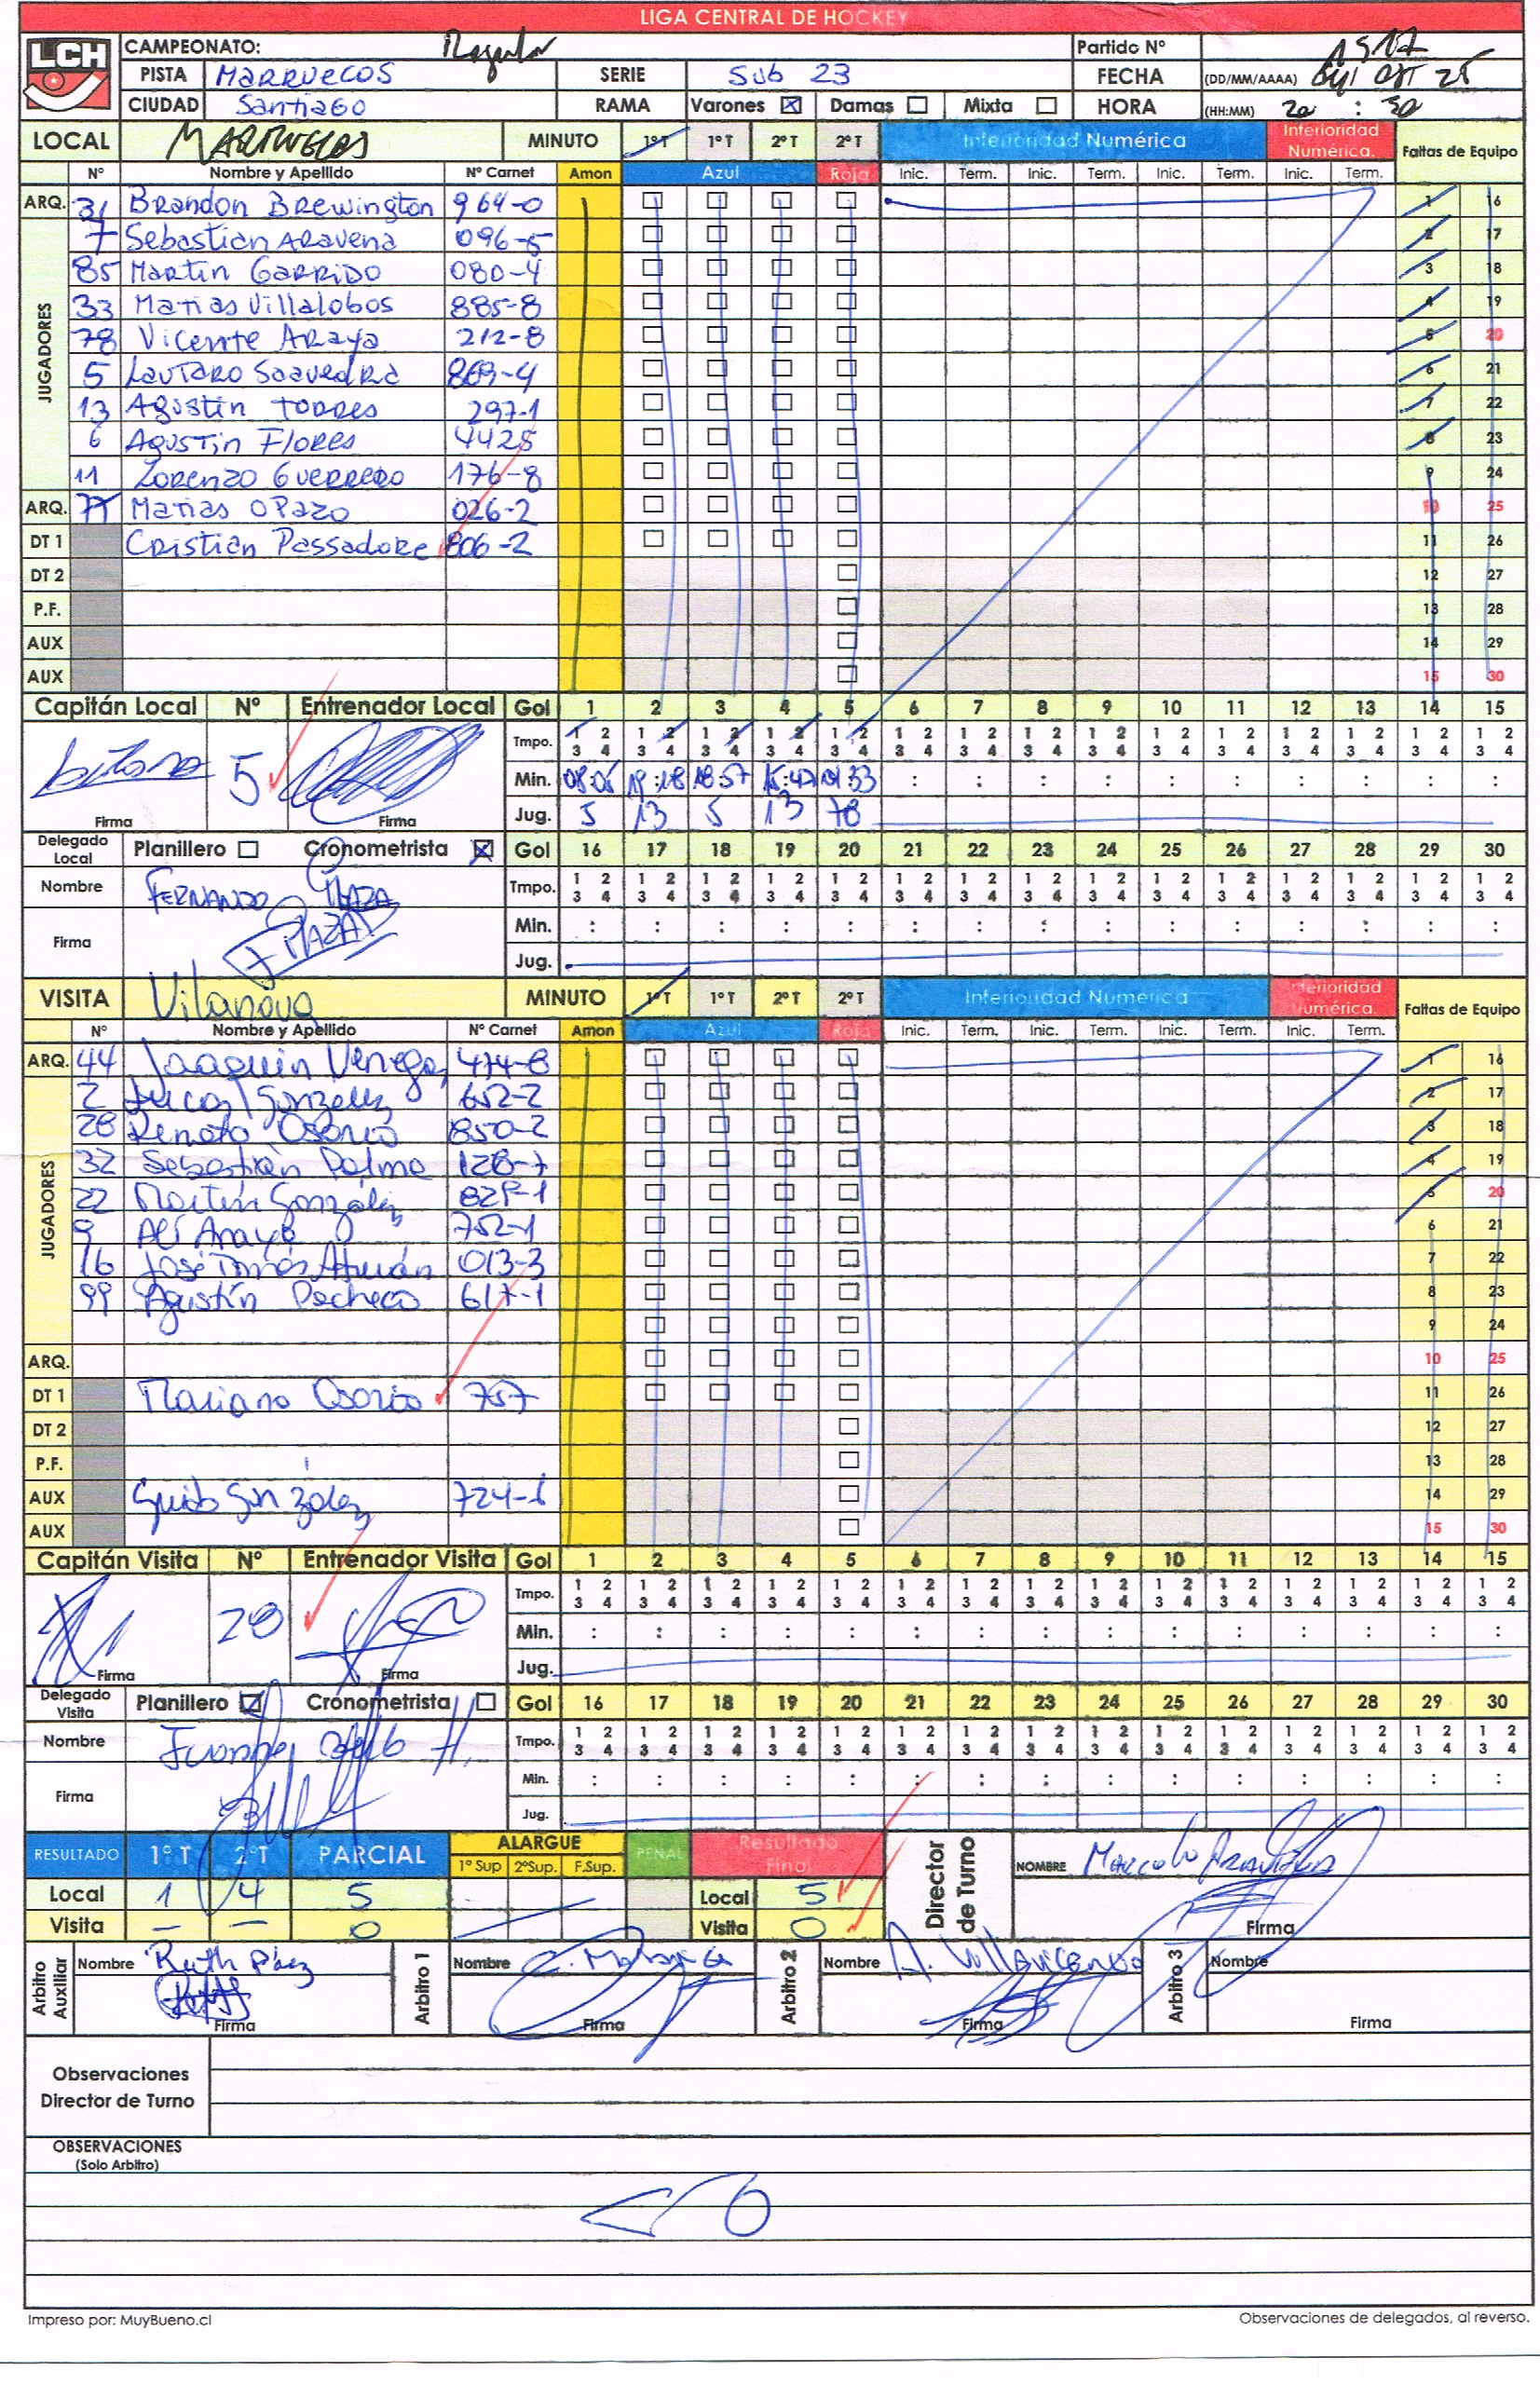 LIGA CENTRAL DE HOCKEY
LCH
CAMPEONATO: Regular Partido Nº 1517
PISTA MARRUECOS SERIE Sub 23 FECHA (DD/MM/AAAA)
CIUDAD Santiago RAMA Varones ☒ Damas ☐ Mixta ☐ HORA (HH:MM) 20 : 30
LOCAL MARRUECOS MINUTO 1º T 1º T 2º T 2º T Inferioridad Numérica Inferioridad Numérica. Faltas de Equipo
Nº Nombre y Apellido Nº Carnet Amon Azul Roja Inic. Term. Inic. Term. Inic. Term. Inic. Term.
ARQ. 31 Brandon Brewington 964-0 1 16
JUGADORES
7 Sebastian Aravena 096-5 2 17
85 Martin Garrido 080-4 3 18
33 Matias Villalobos 885-8 4 19
78 Vicente Araya 212-8 5 20
5 Lautaro Saavedra 869-4 6 21
13 Agustin Torres 297-1 7 22
6 Agustin Flores 4425 8 23
11 Lorenzo Guerrero 176-8 9 24
ARQ. 77 Matias Opazo 026-2 10 25
DT 1 Cristian Passadore 806-2 11 26
DT 2 12 27
P.F. 13 28
AUX 14 29
AUX 15 30
Capitán Local Nº Entrenador Local Gol 1 2 3 4 5 6 7 8 9 10 11 12 13 14 15
5 Tmpo. 1 2 3 4 1 2 3 4 1 2 3 4 1 2 3 4 1 2 3 4 1 2 3 4 1 2 3 4 1 2 3 4 1 2 3 4 1 2 3 4 1 2 3 4 1 2 3 4 1 2 3 4 1 2 3 4 1 2 3 4
Min. 19:18 18:57 15:47 : : : : : : : : : :
Firma Firma Jug. 5 13 5 13 78
Delegado Local Planillero ☐ Cronometrista ☒ Gol 16 17 18 19 20 21 22 23 24 25 26 27 28 29 30
Nombre FERNANDO PLAZA Tmpo. 1 2 3 4 1 2 3 4 1 2 3 4 1 2 3 4 1 2 3 4 1 2 3 4 1 2 3 4 1 2 3 4 1 2 3 4 1 2 3 4 1 2 3 4 1 2 3 4 1 2 3 4 1 2 3 4 1 2 3 4
Firma F PLAZA Min. : : : : : : : : : : : : : : :
Jug.
VISITA Vilanova MINUTO 1º T 1º T 2º T 2º T Inferioridad Numérica Inferioridad Numérica. Faltas de Equipo
Nº Nombre y Apellido Nº Carnet Amon Azul Roja Inic. Term. Inic. Term. Inic. Term. Inic. Term.
ARQ. 44 Joaquin Venegas 474-8 1 16
JUGADORES
2 Lucas Gonzalez 652-2 2 17
28 Renato Osorio 850-2 3 18
32 Sebastián Palma 128-7 4 19
22 Martin González 5 20
9 Alí Araya 752-1 6 21
16 José Tomás 013-3 7 22
99 Agustín Pacheco 617-1 8 23
9 24
ARQ. 10 25
DT 1 Mariano Osorio 757 11 26
DT 2 12 27
P.F. 13 28
AUX Guido González 14 29
AUX 15 30
Capitán Visita Nº Entrenador Visita Gol 1 2 3 4 5 6 7 8 9 10 11 12 13 14 15
28 Tmpo. 1 2 3 4 1 2 3 4 1 2 3 4 1 2 3 4 1 2 3 4 1 2 3 4 1 2 3 4 1 2 3 4 1 2 3 4 1 2 3 4 1 2 3 4 1 2 3 4 1 2 3 4 1 2 3 4 1 2 3 4
Min. : : : : : : : : : : : : : : :
Firma Firma Jug.
Delegado Visita Planillero ☑ Cronometrista ☐ Gol 16 17 18 19 20 21 22 23 24 25 26 27 28 29 30
Nombre Tmpo. 1 2 3 4 1 2 3 4 1 2 3 4 1 2 3 4 1 2 3 4 1 2 3 4 1 2 3 4 1 2 3 4 1 2 3 4 1 2 3 4 1 2 3 4 1 2 3 4 1 2 3 4 1 2 3 4 1 2 3 4
Firma Min. : : : : : : : : : : : : : : :
Jug.
RESULTADO 1º T 2ºT PARCIAL ALARGUE 1º Sup 2ºSup. F.Sup. PENAL Resultado Final Director de Turno NOMBRE
Local 1 4 5 Local 5
Visita – – 0 Visita 0 Firma
Arbitro Auxiliar Nombre Ruth Páez Arbitro 1 Nombre Arbitro 2 Nombre A. Villavicencio Arbitro 3 Nombre
Firma Firma Firma Firma
Observaciones
Director de Turno
OBSERVACIONES
(Solo Arbitro)
Impreso por: MuyBueno.cl Observaciones de delegados, al reverso.